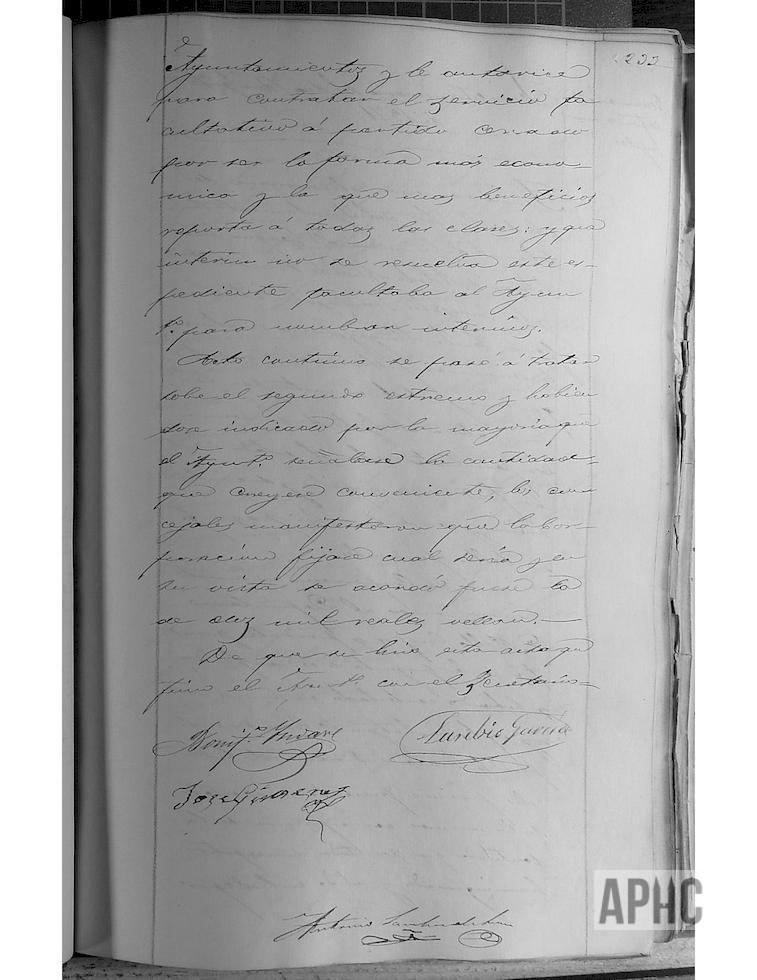 233
Ayuntamientos y le autorice
para contratar el servicio fa
cultativo á partido cerrado
por ser la forma más econo-
mica y la que mas beneficios
reporta á todas las clases: y que
interin no se resuelva este es-
pediente facultaba al Ayun
tº para nombrar interinos.
Acto continuo se pasó á tratar
sobe el segundo estremo y habien
dose indicado por la mayoria que
el Ayuntº señalase la cantidad
que creyese conveniente, los con-
cejales manifestaron que la Cor-
poracion fijase cual seria y en
su vista se acordó fuese la
de diez mil reales vellon.—
De que se hizo esta acta que
firma el Ayuntº con el Secretario—
Bonifº
Eusebio Garcia
Jose Gimenez
Antonio
APHC